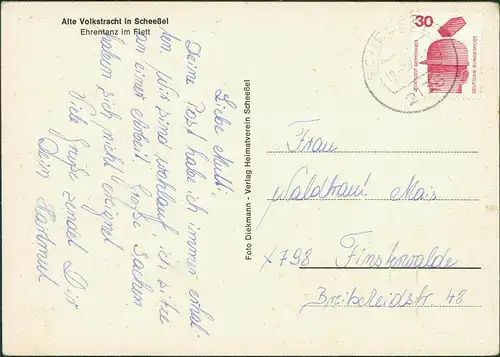 Alte Volkstracht in Scheeßel
Ehrentanz im Flett
Liebe Mutti,
Deine Post habe ich immer erhal-
ten. Wir sind wohlauf, ich sitze
an einer Arbeit. Große Sachen
haben sich nicht ereignet.
Viele Grüße sendet Dir
Dein Hartmut
Foto Diekmann - Verlag Heimatverein Scheeßel
30
DEUTSCHE BUNDESPOST
Frau
Waldtraut Mais
x 798 Finsterwalde
Breitscheidstr 48